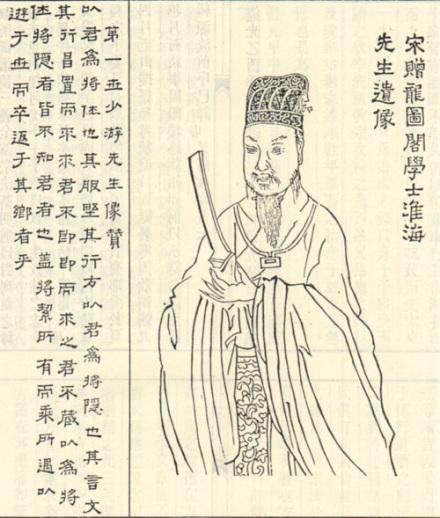 宋贈龍圖閣學士淮海
先生遺像
第一世少游先生像贊
以君為將仕也其服堅其行方以君為將隱也其言文
其行昌置而不求君不即即而求之君不藏以為將
仕將隱者皆不知君者也蓋將絜所有而乘所遇以
遊于世而卒返于其鄉者乎